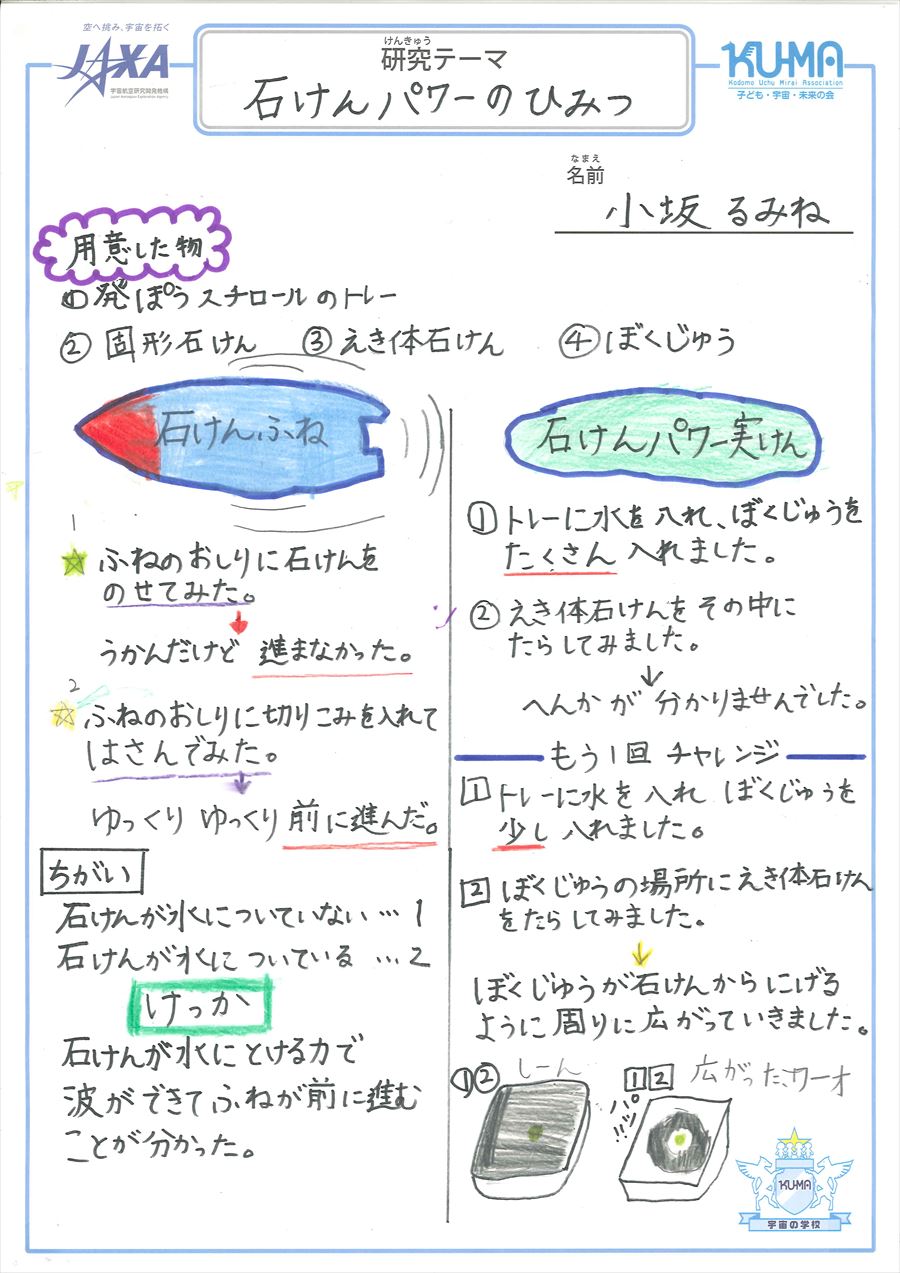 空へ挑み、宇宙を拓く
JAXA
宇宙航空研究開発機構
Japan Aerospace Exploration Agency
けんきゅう
研究テーマ
石けんパワーのひみつ
KUMA
Kodomo Uchu Mirai Association
子ども・宇宙・未来の会
なまえ
名前
小坂 るみね
用意した物
①発ぽうスチロールのトレー
② 固形石けん ③えき体石けん ④ぼくじゅう
石けんふね
1
ふねのおしりに石けんを
のせてみた。
うかんだけど 進まなかった。
2
ふねのおしりに切りこみを入れて
はさんでみた。
ゆっくり ゆっくり前に進んだ。
ちがい
石けんが水についていない…1
石けんが水についている …2
けっか
石けんが水にとける力で
波ができてふねが前に進む
ことが分かった。
石けんパワー実けん
① トレーに水を入れ、ぼくじゅうを
たくさん 入れました。
② えき体石けんをその中に
たらしてみました。
↓
へんかが分かりませんでした。
もう1回 チャレンジ
1 トレーに水を入れ ぼくじゅうを
少し 入れました。
2 ぼくじゅうの場所にえき体石けん
をたらしてみました。
↓
ぼくじゅうが石けんからにげる
ように周りに広がっていきました。
①② しーん
1 2 広がった、ワーオ
パッ!!!
KUMA
宇宙の学校